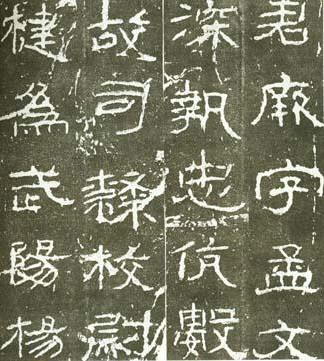 君厥字孟文
深執忠伉數
故司隸校尉
楗為武陽楊